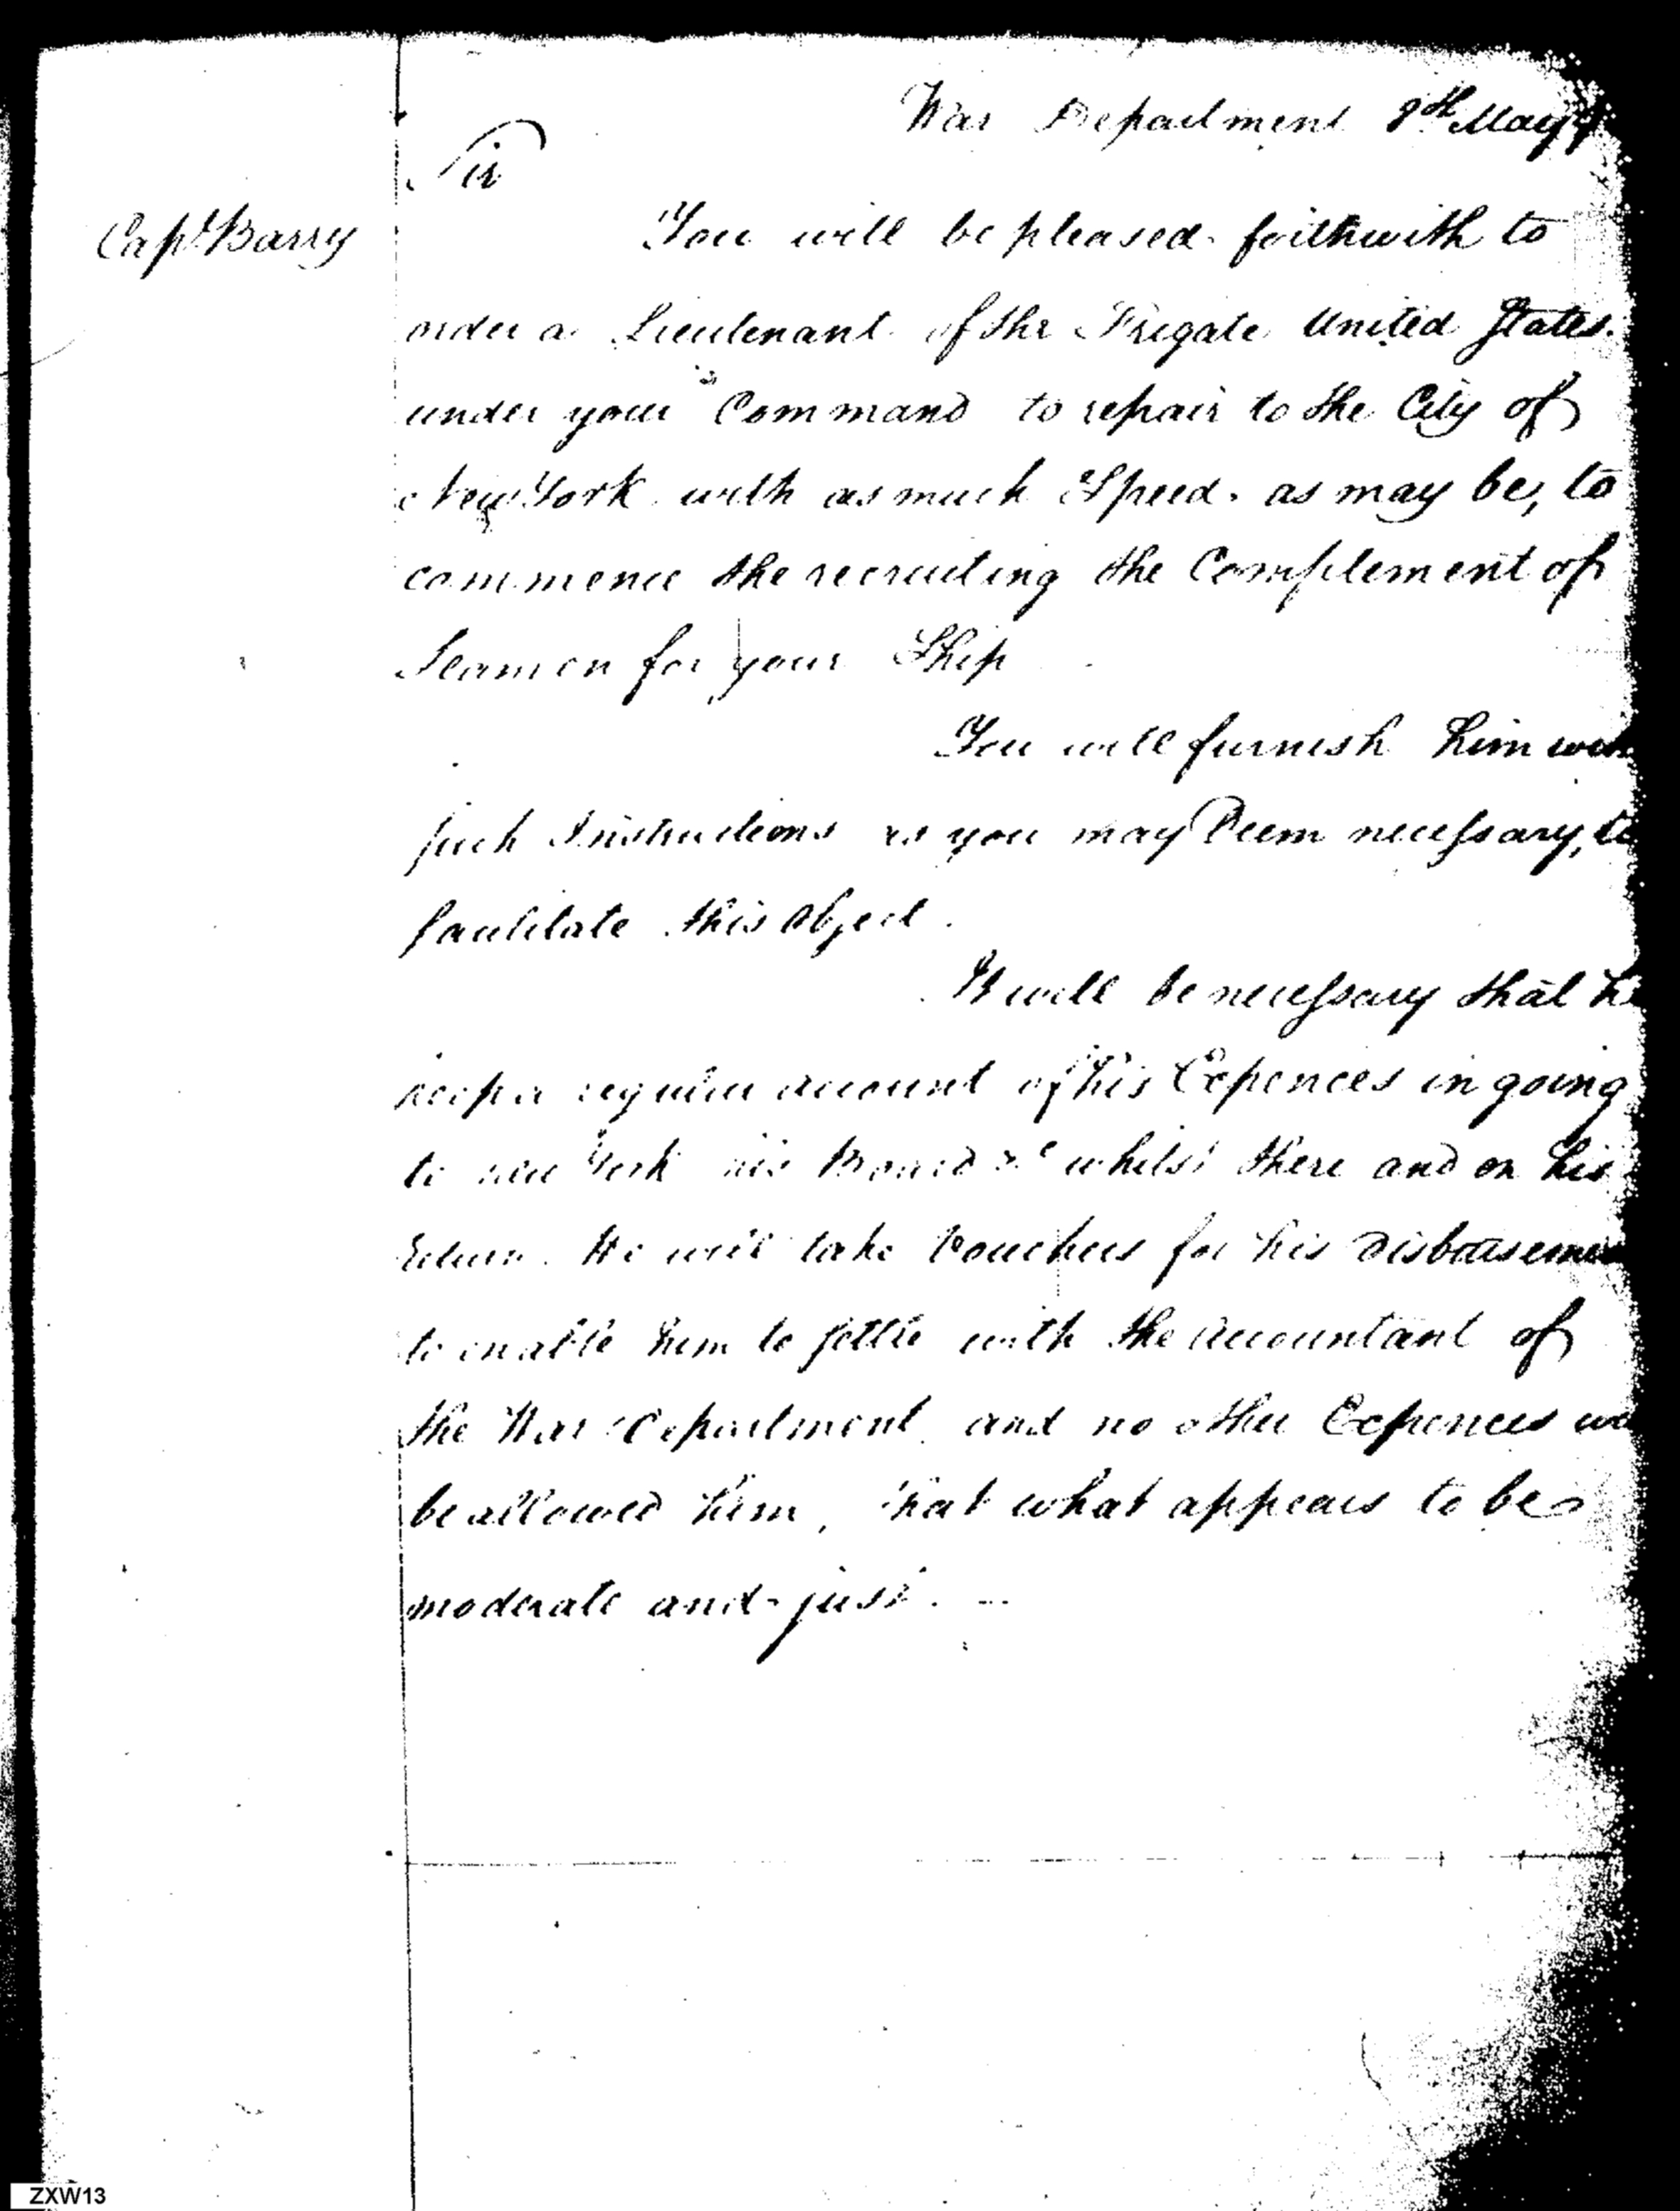 War Department 8th May
Sir
Capt Barry
You will be pleased forthwith to
order a Lieutenant of the Frigate United States
under your Command to repair to the City of
New York with as much Speed as may be, to
commence the recruiting the Complement of
Seamen for your Ship
You will furnish him with
such Instructions as you may Deem necessary, to
facilitate this Object.
It will be necessary that he
keep a regular account of his Expences in going
to New York his Board &c whilst there and on his
return. He will take Vouchers for his Disbursements
to enable him to settle with the Accountant of
the War Department and no other Expences
be allowed him, that what appears to be
moderate and just.
ZXW13